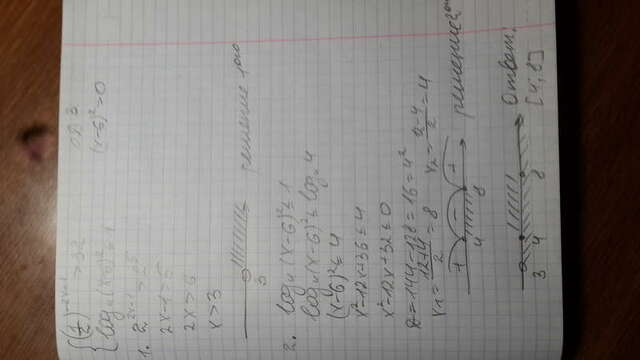 ОДЗ
(x-6)²>0
{(1/2)^(-2x+1) > 32
{log₄(x-6)² ≤ 1
1. 2^(2x-1) > 2⁵
2x-1>5
2x>6
x>3
3 решение 1ого
2. log₄(x-6)² ≤ 1
log₄(x-6)² ≤ log₄ 4
(x-6)² ≤ 4
x²-12x+36 ≤ 4
x²-12x+32 ≤ 0
D=144-128=16=4²
x₁=(12+4)/2=8 x₂= =4
+ - +
4 8 решение 2ого
3 4 8
Ответ:
[4; 8]